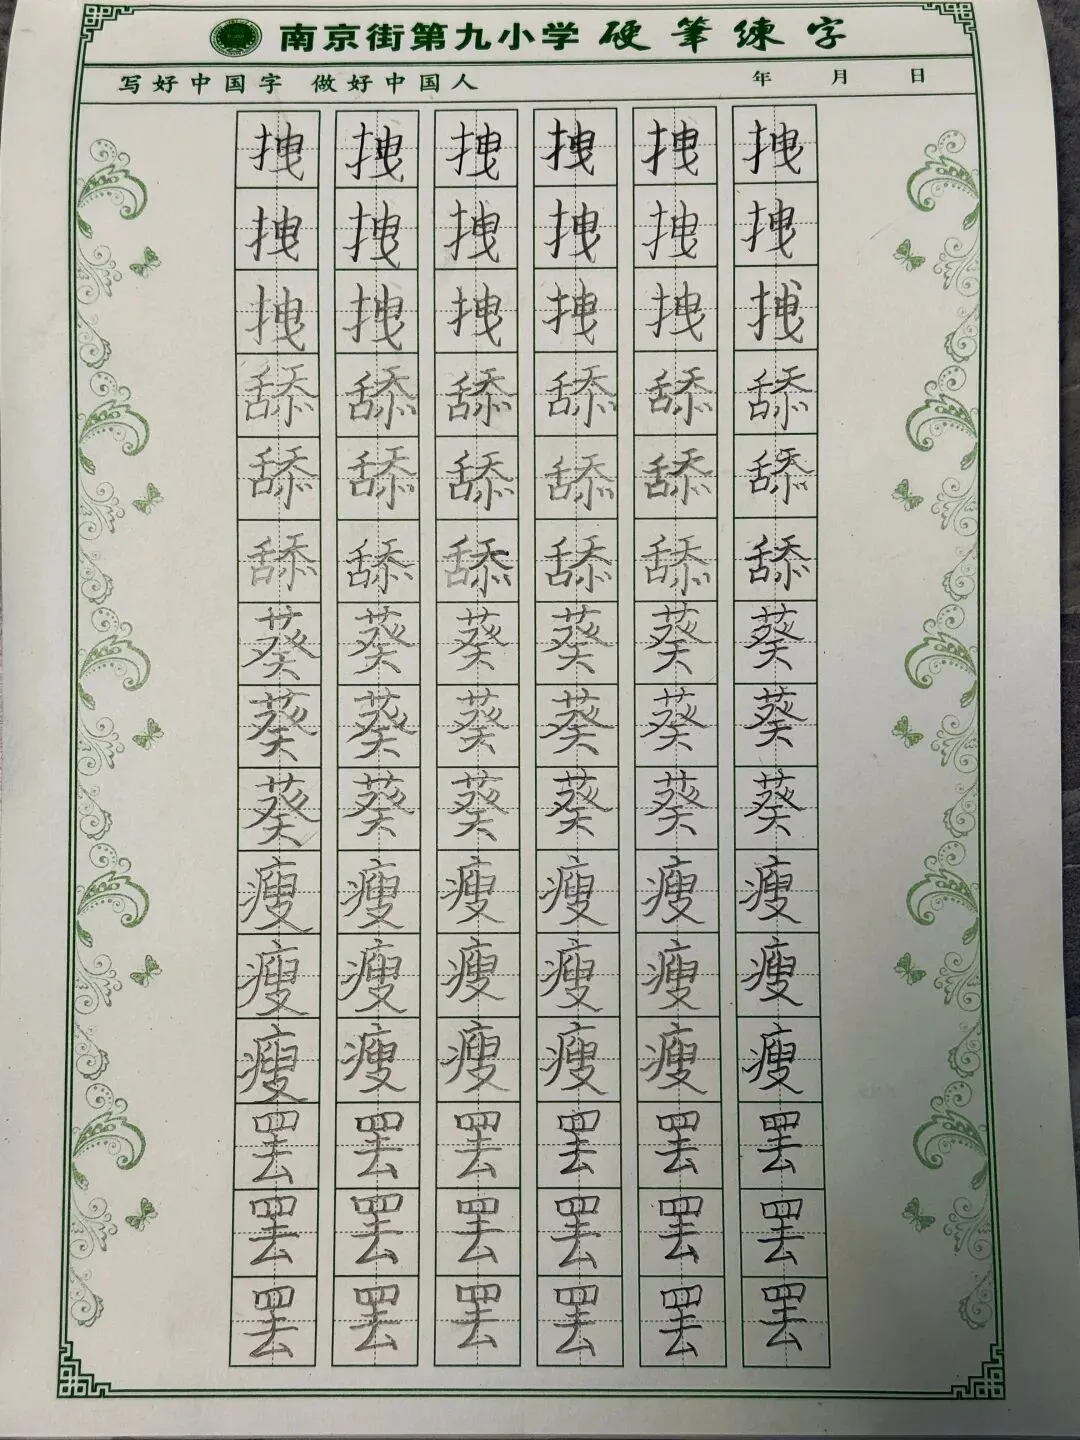 南京街第九小学 硬筆練字
写好中国字 做好中国人 年 月 日
拽 拽 拽 拽 拽 拽
拽 拽 拽 拽 拽 拽
拽 拽 拽 拽 拽 拽
舔 舔 舔 舔 舔 舔
舔 舔 舔 舔 舔 舔
舔 舔 舔 舔 舔 舔
葵 葵 葵 葵 葵 葵
葵 葵 葵 葵 葵 葵
葵 葵 葵 葵 葵 葵
瘦 瘦 瘦 瘦 瘦 瘦
瘦 瘦 瘦 瘦 瘦 瘦
瘦 瘦 瘦 瘦 瘦 瘦
罢 罢 罢 罢 罢 罢
罢 罢 罢 罢 罢 罢
罢 罢 罢 罢 罢 罢